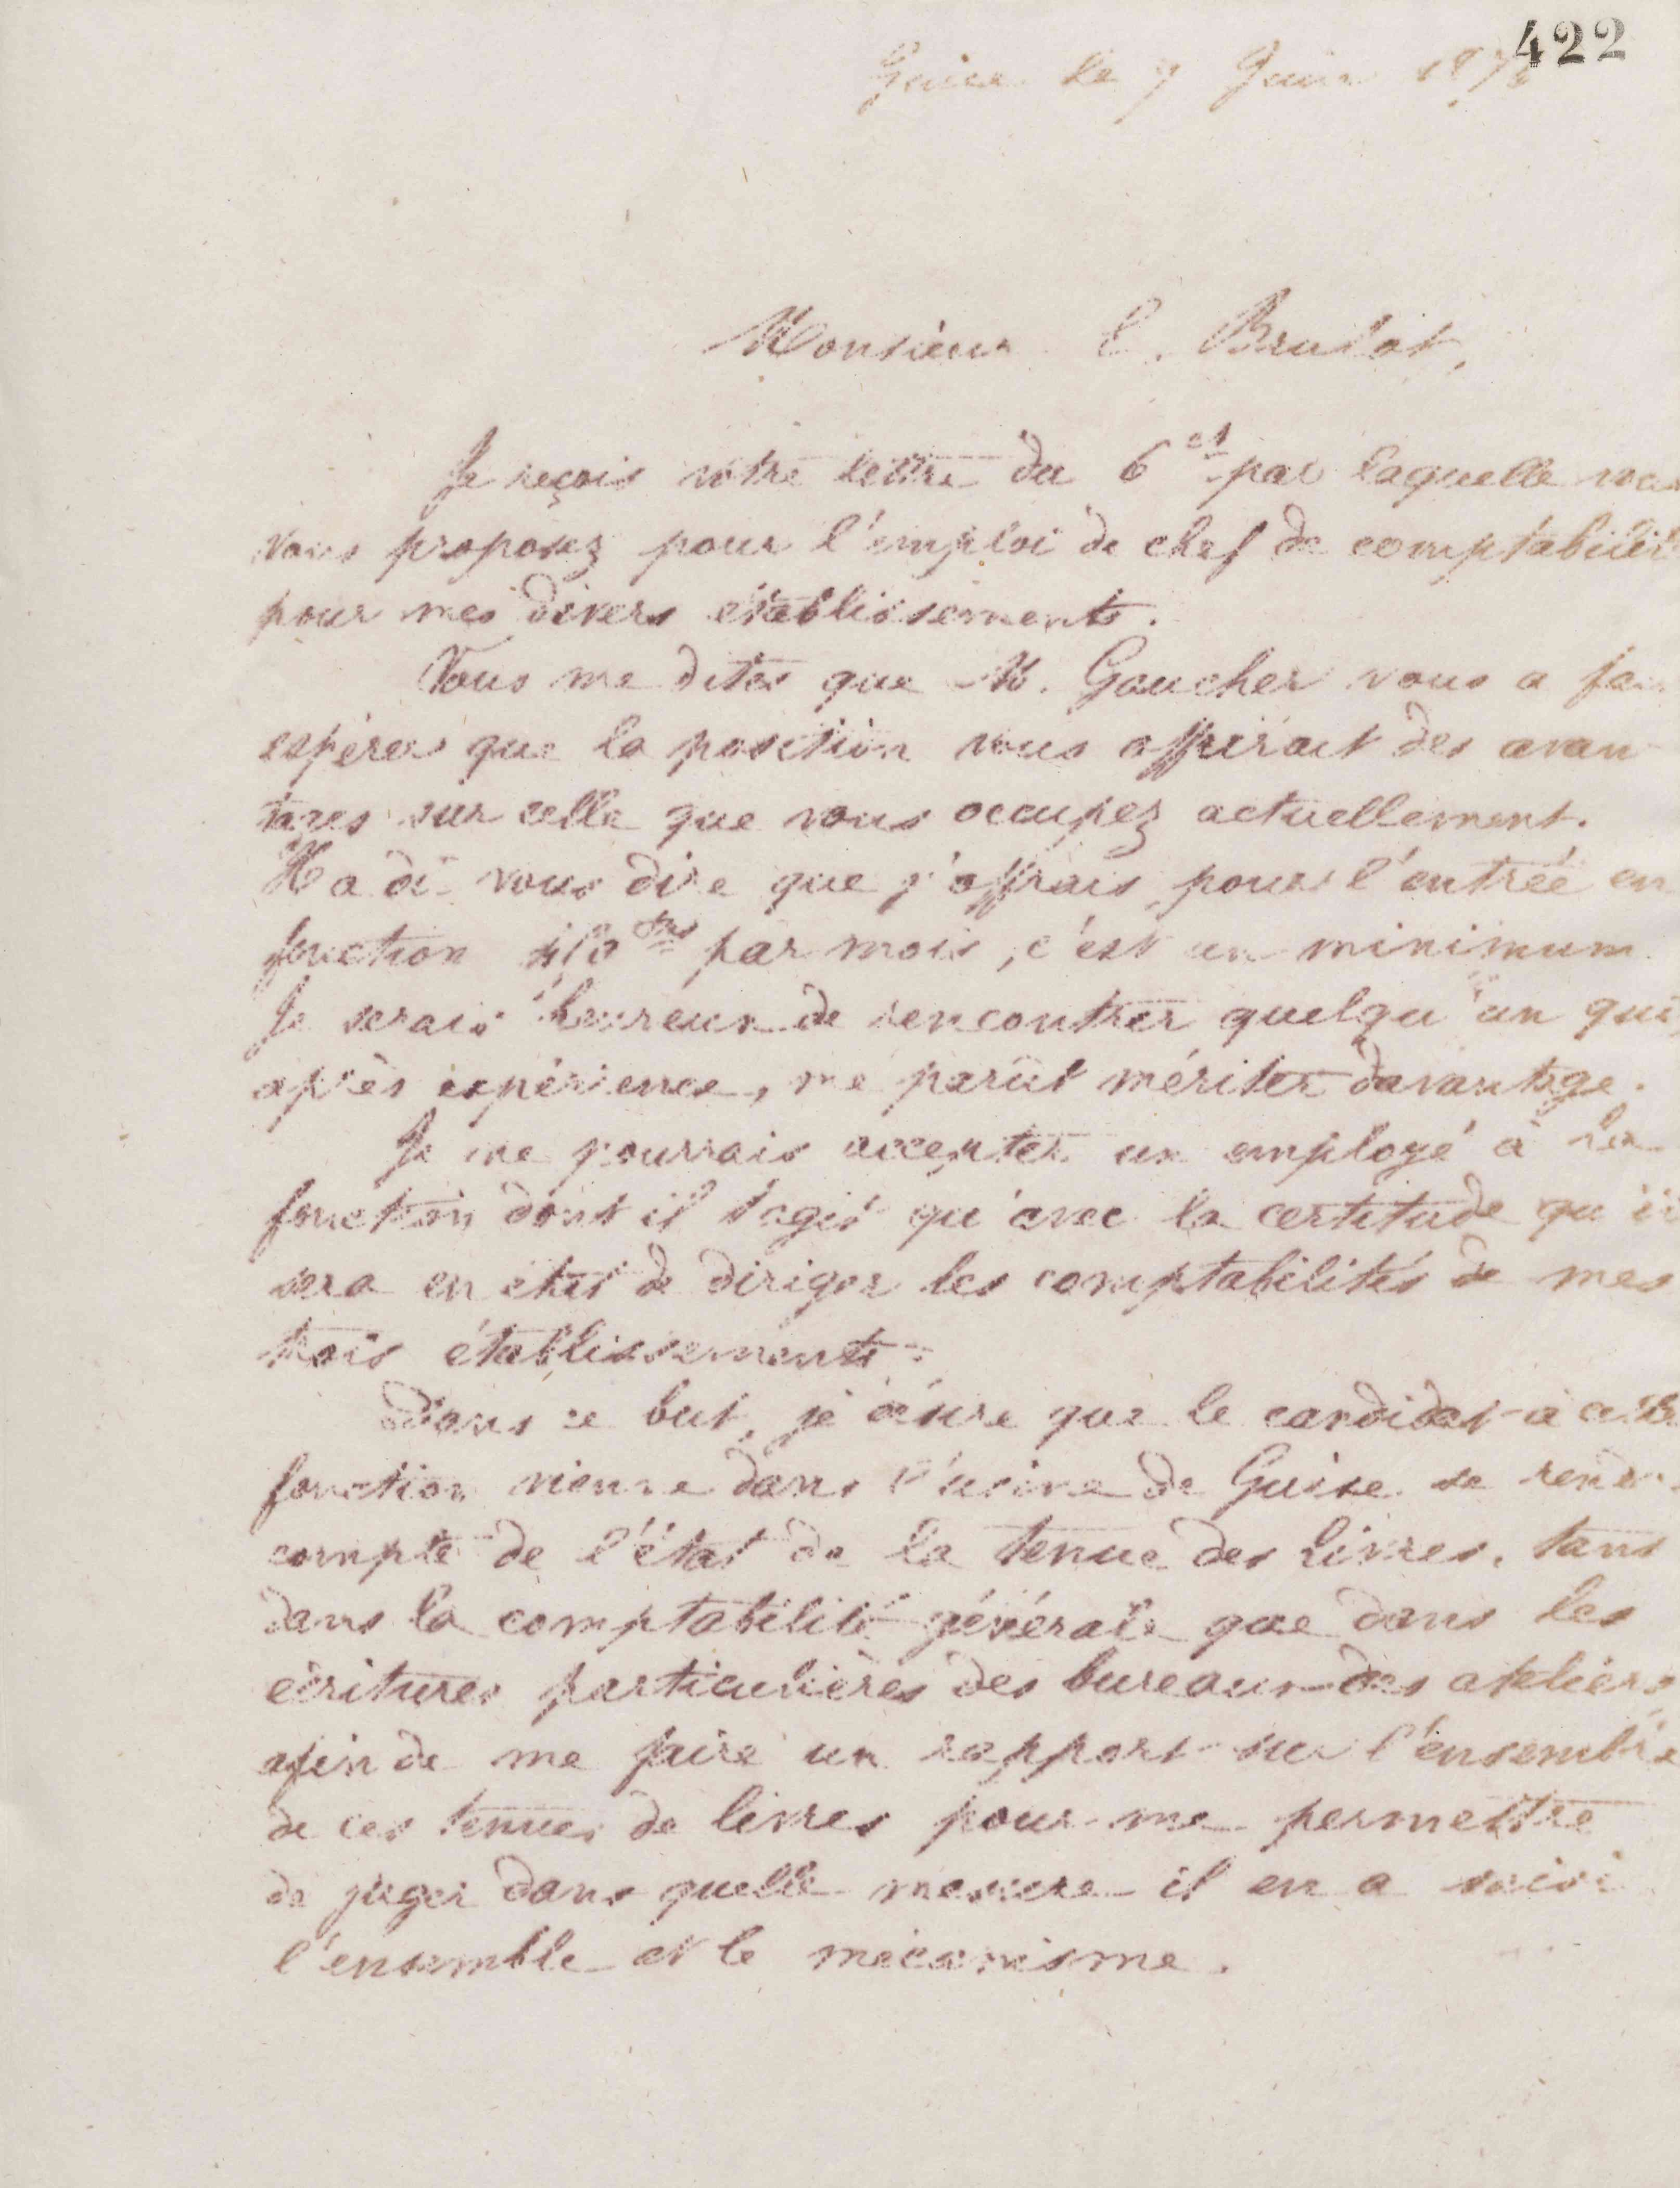 422
Guise le 7 Juin 187
Monsieur Brulot,
Je reçois votre lettre du 6 ct par laquelle vous
vous proposez pour l'emploi de chef de comptabilité
pour mes divers établissements.
Vous me dites que M. Gaucher vous a fai
espérer que la position vous offrirait des avan
tages sur celle que vous occupez actuellement.
Il a dû vous dire que j'offrais pour l'entrée en
fonction frs par mois, c'est un minimum
Je serais heureux de rencontrer quelqu'un qui
après expérience, me parût mériter davantage.
Je ne pourrais accepter un employé à la
fonction dont il s'agit qu'avec la certitude qu'il
sera en état de diriger les comptabilités de mes
trois établissements.
Dans ce but, je désire que le candidat à cette
fonction vienne dans l'usine de Guise se rendre
compte de l'état de la tenue des livres, tant
dans la comptabilité générale que dans les
écritures particulières des bureaux des ateliers
afin de me faire un rapport sur l'ensemble
de ces tenues de livres pour me permettre
de juger dans quelle mesure il en a saisi
l'ensemble et le mécanisme.